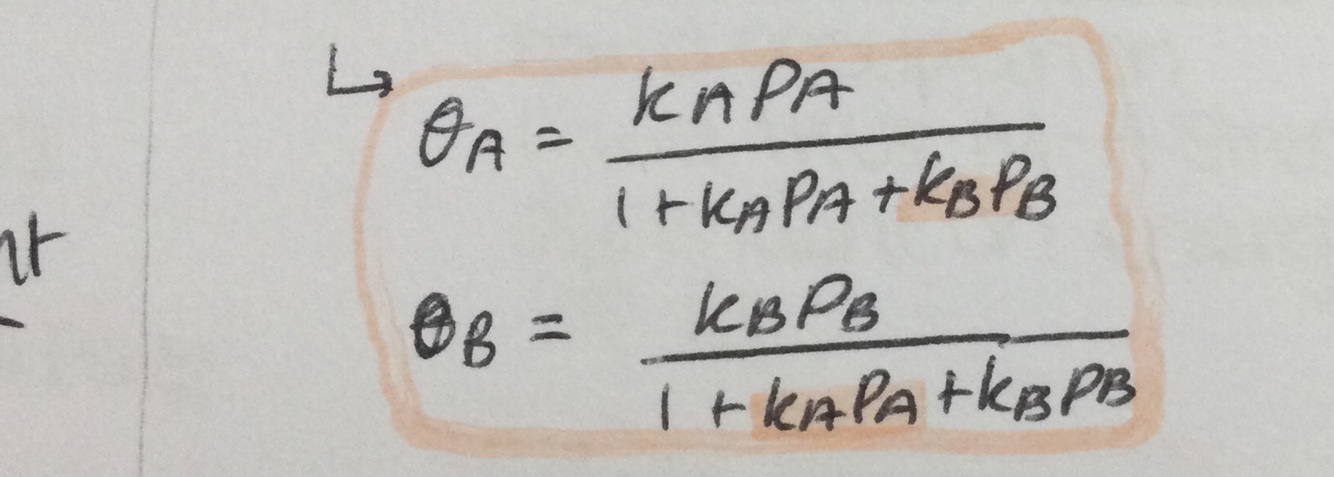 ↳ θA = kAPA / 1+kAPA+kBPB
θB = kBPB / 1+kAPA+kBPB